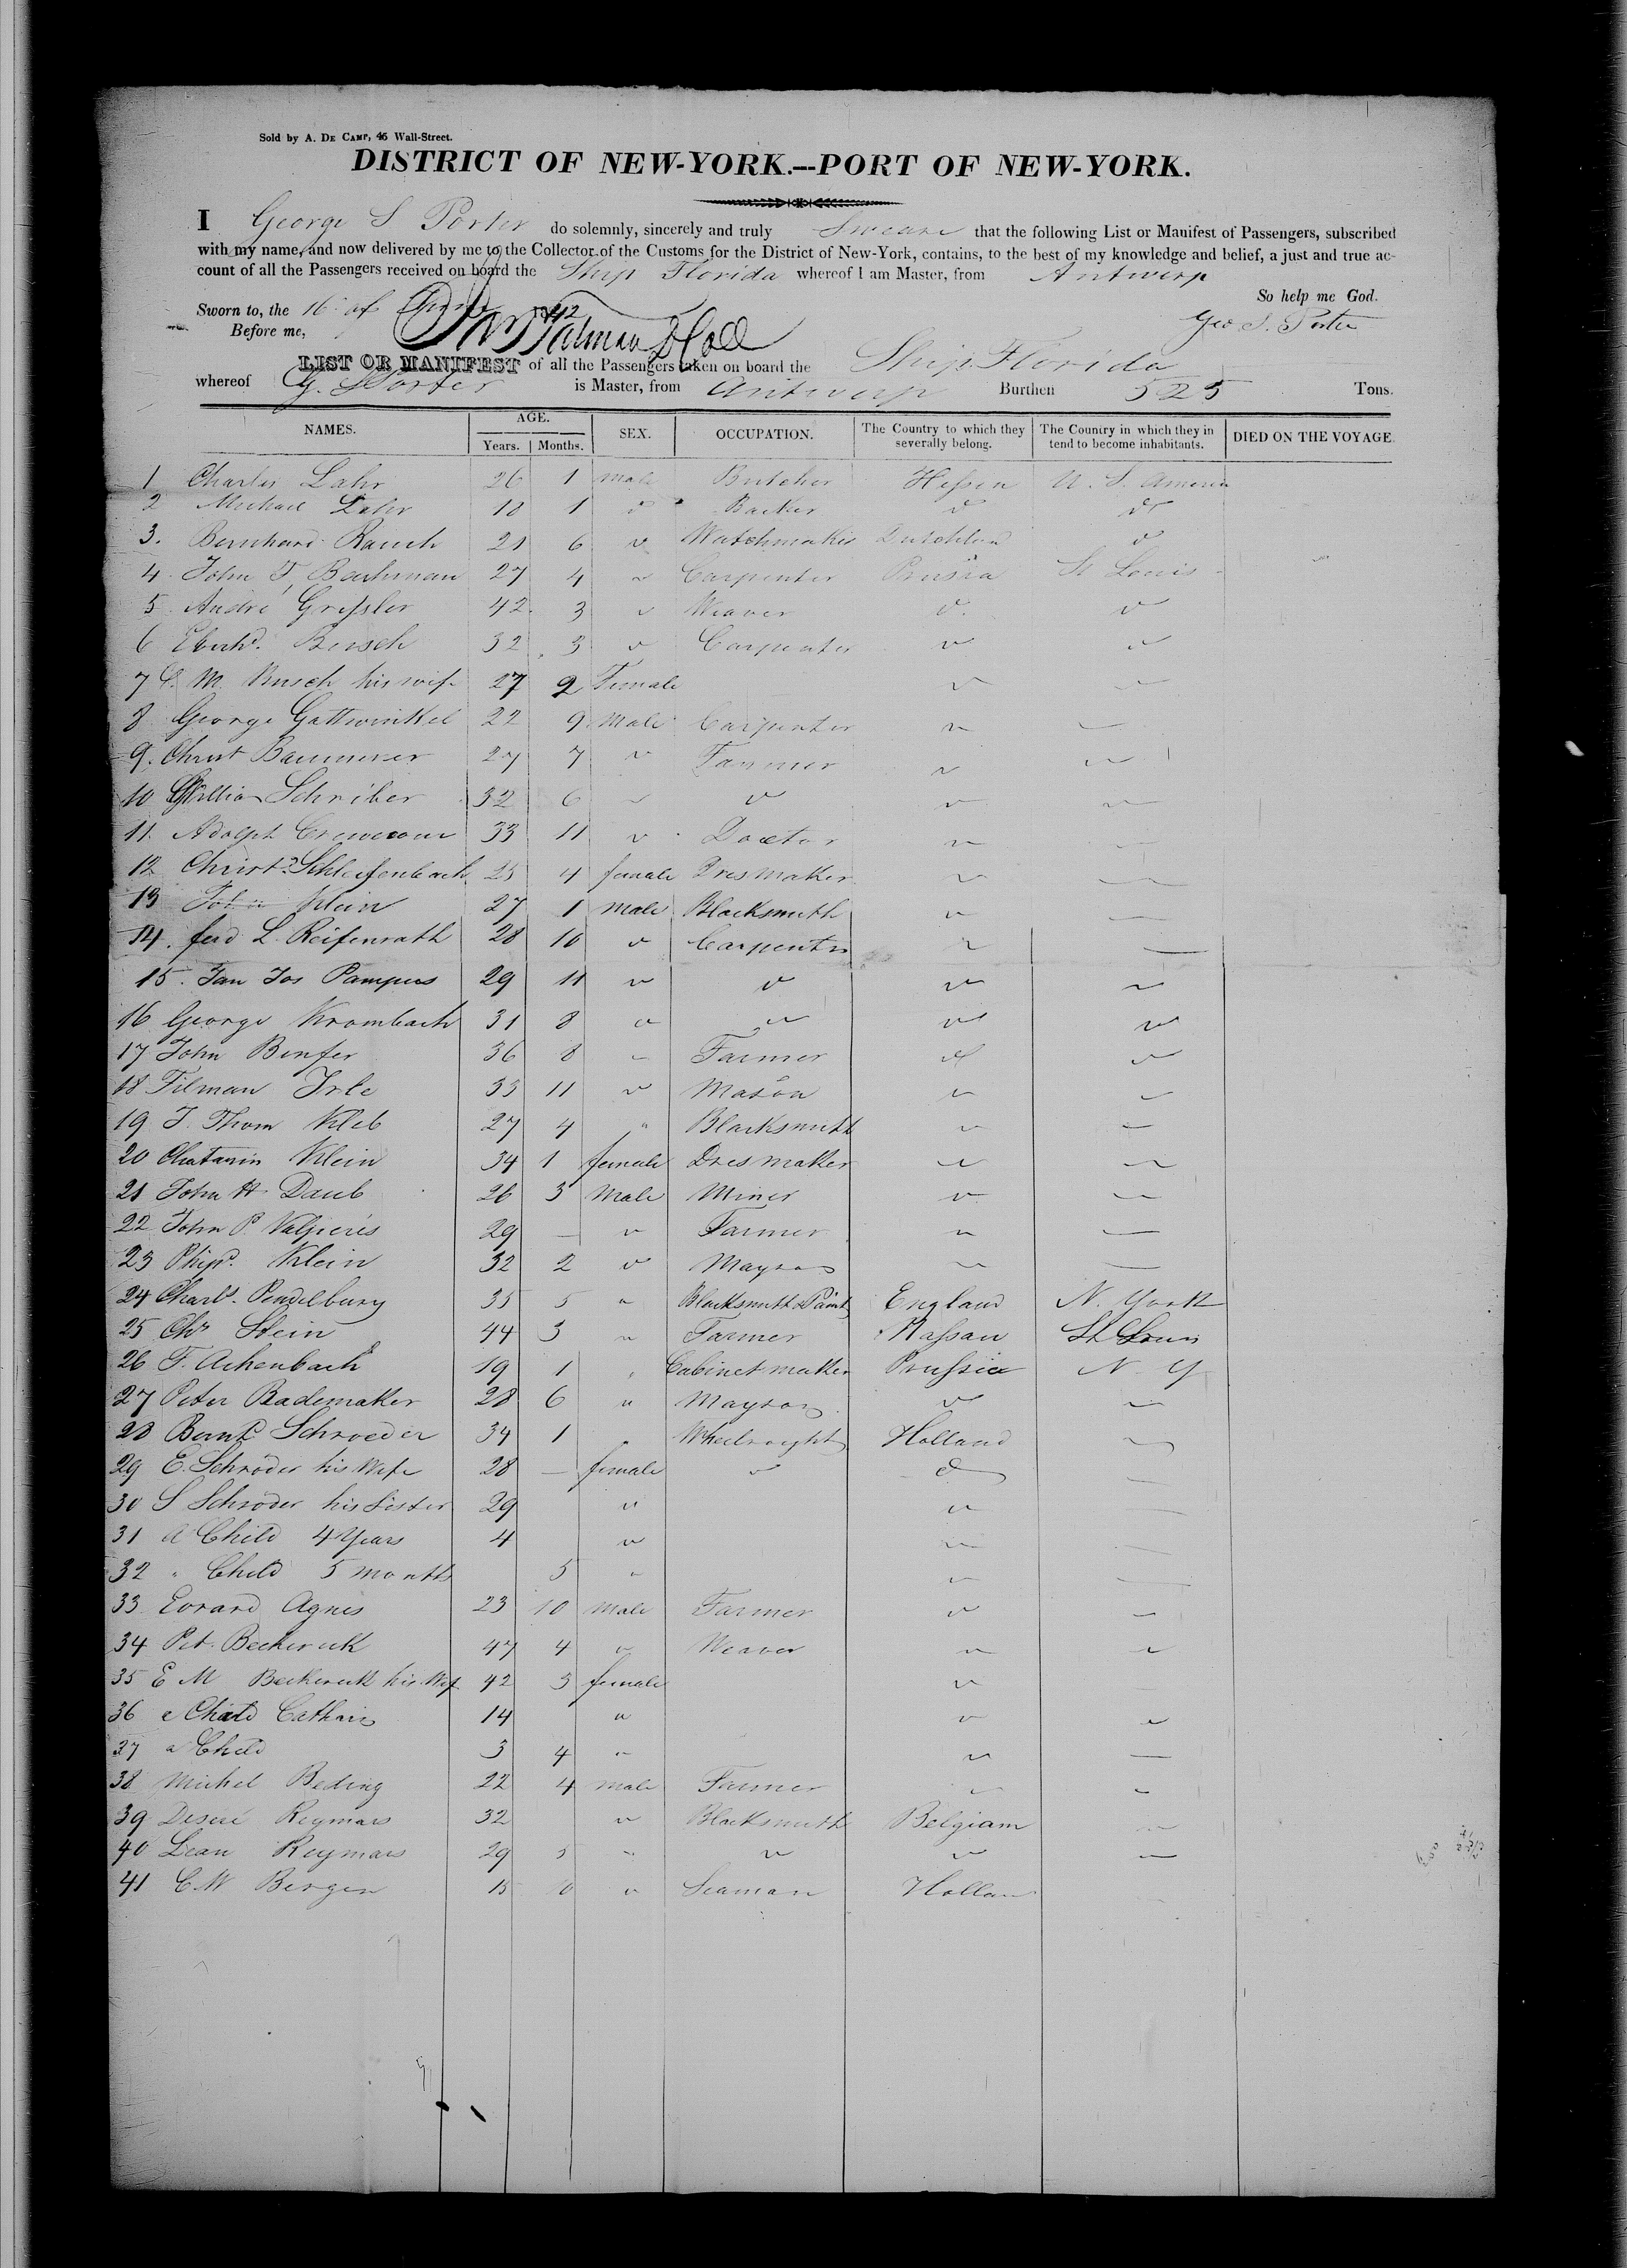 Sold by A. De Camp, 46 Wall-Street.
DISTRICT OF NEW-YORK.—PORT OF NEW-YORK.
I George S Porter do solemnly, sincerely and truly Swear that the following List or Manifest of Passengers, subscribed
with my name, and now delivered by me to the Collector of the Customs for the District of New-York, contains, to the best of my knowledge and belief, a just and true ac-
count of all the Passengers received on board the Ship Florida whereof I am Master, from Antwerp
So help me God.
Sworn to, the 16 of 1842
Before me, Geo S. Porter
LIST OR MANIFEST of all the Passengers taken on board the Ship Florida
whereof G. S Porter is Master, from Antwerp Burthen 525 Tons.
NAMES. AGE. Years. Months. SEX. OCCUPATION. The Country to which they severally belong. The Country in which they intend to become inhabitants. DIED ON THE VOYAGE.
1 Charles Lahr 26 1 male Butcher Hessen U. S. America
2 Michael Lahr 18 1 Backer
3. Bernhard Rauch 21 6 Watchmaker
4 John T. Bachman 27 4 Carpenter Prusia St Louis
5 André Gressler 42 3 Weaver
6 Eberhd. Busch 32 3 Carpenter
7 C. M. Busch his wife 27 2 Female
8 George Gattwinkel 22 9 Male Carpenter
9. Christ 27 7 Farmer
10 William Schriber 32 6
11. Adolph 33 11 Doctor
12 Christ. Schleifenbach 25 4 female Dres maker
13 John Klein 27 1 Male Blacksmith
14. ferd L. Reifenrath 28 10 Carpenter
15. Jan Jos Pampus 29 11
16 George Krombach 31 8
17 John Benfer 36 8 Farmer
18 Tilman Irle 33 11 Mason
19 J. Thom Kleb 27 4 Blacksmith
20 Chatarin Klein 34 1 female Dres maker
21 John H Daub 26 3 Male Miner
22 John P. 29 — Farmer
23 Phipd. Klein 32 2 Mayson
24 Charls. Pendelbury 35 5 Blacksmith & Paint England N. York
25 Chr Stein 44 3 Farmer Nassau St Louis
26 F. Achenbach 19 1 Cabinet maker Prussia N. Y
27 Peter Rademaker 28 6 Mayson
28 Bernd Schroeder 34 1 Wheelwright Holland
29 E. Schröder his Wife 28 — female
30 S Schröder his Sister 29
31 a Child 4 Years 4
32 " Child 5 months 5
33 Evrard Agnes 23 10 male Farmer
34 Pet. Beckeruk 47 4 Weaver
35 E M Beckeruk his Wife 42 3 female
36 a Child Catharin 14
37 a Child 3 4
38 Michel Beding 22 4 male Farmer
39 Deseré Reymars 32 Blacksmith Belgiam
40 Reymars 29 5
41 C. W Bergen 15 10 Seaman Holland